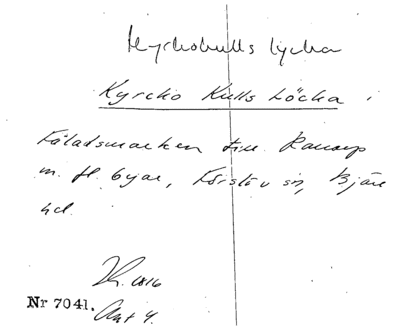 Kyrkokulls lycka
Kyrcko Kulls Löcka
Fäladsmarken till Ranarp
m. fl. byar, Förslöv sn, Bjäre
hd.
1816
Nr 7041. Akt 4.